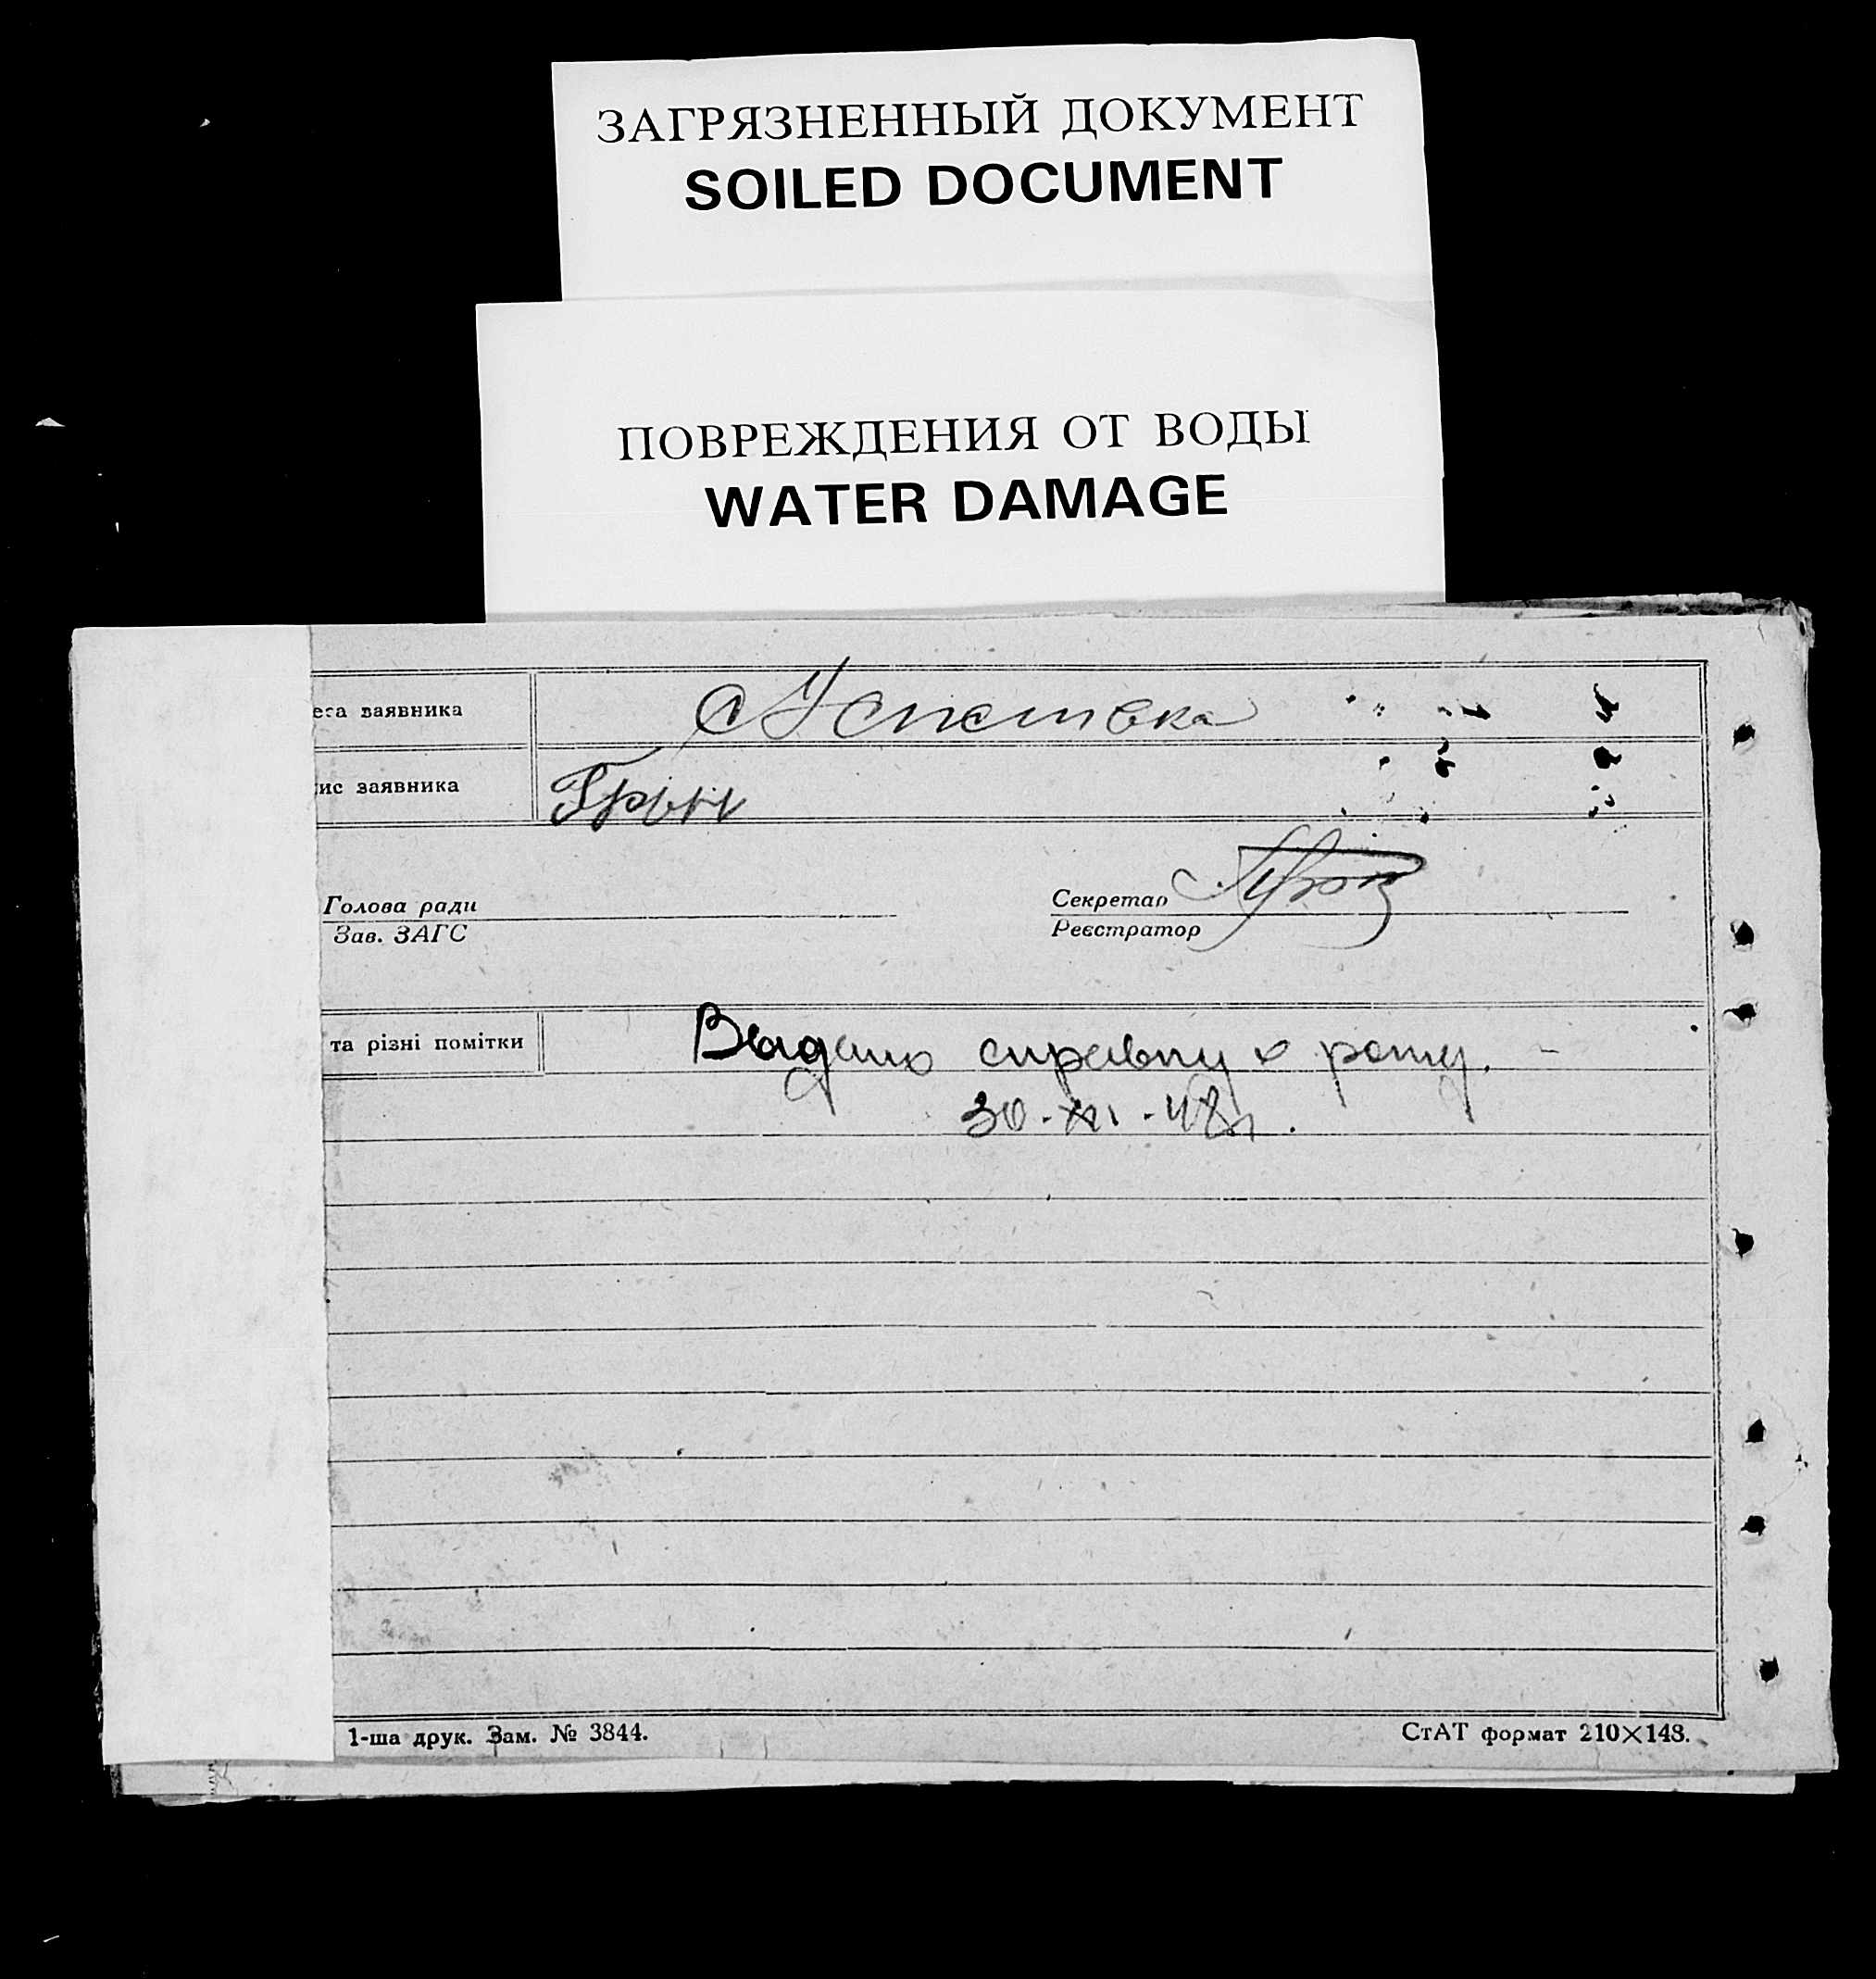 ЗАГРЯЗНЕННЫЙ ДОКУМЕНТ
SOILED DOCUMENT
ПОВРЕЖДЕНИЯ ОТ ВОДЫ
WATER DAMAGE
еса заявника
ис заявника
Голова ради
Секретар
Зав. ЗАГС
Реєстратор
та різні помітки
Выдано справку о
30-XI-48г.
1-ша друк. Зам. № 3844.
СтАТ формат 210×148.